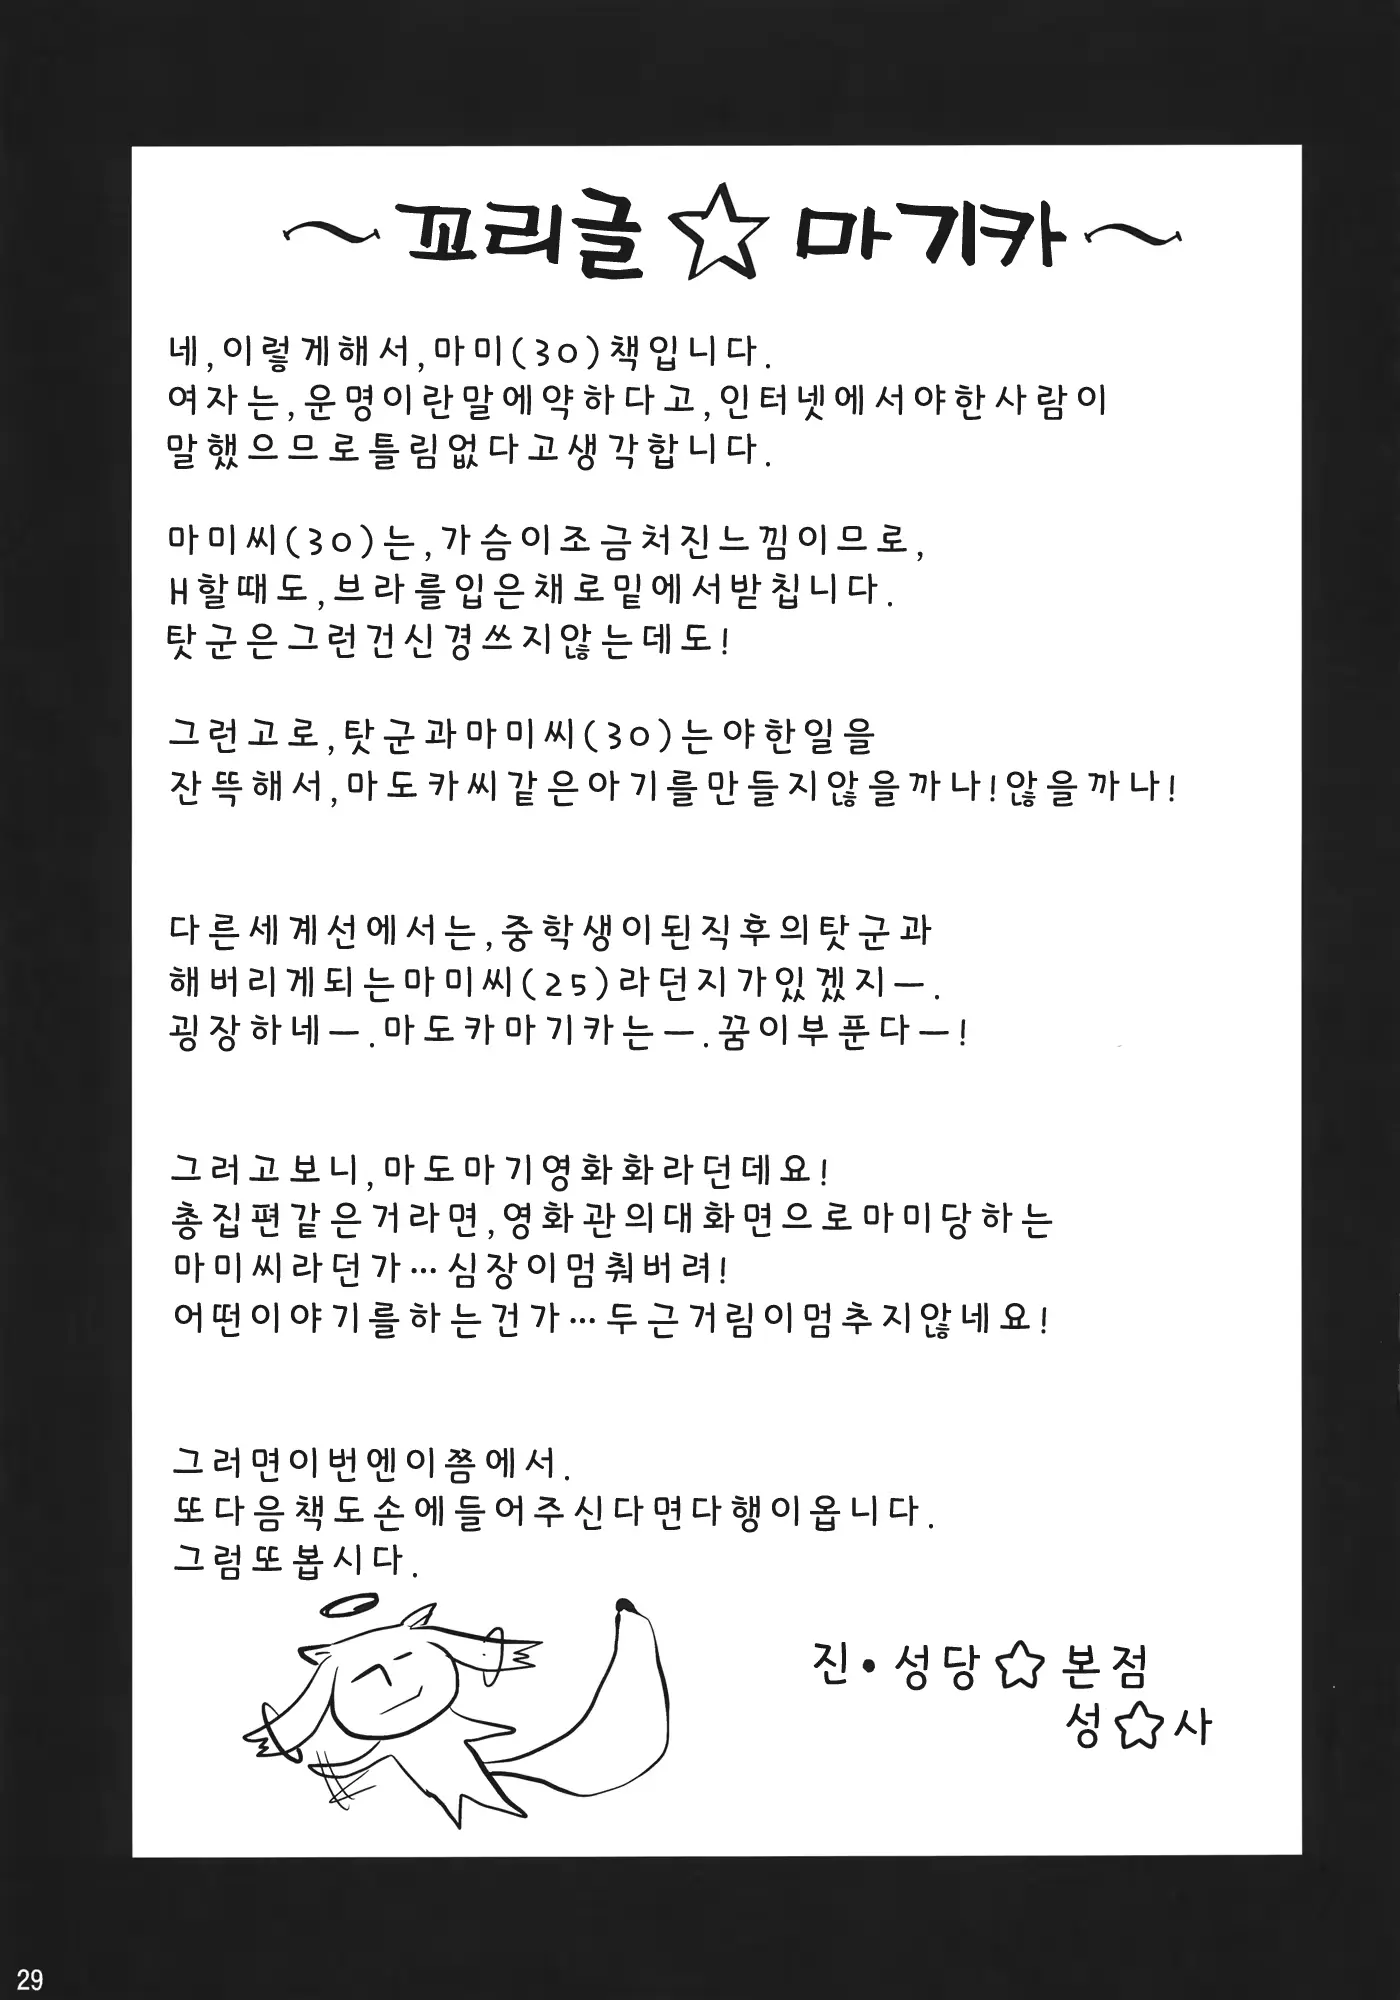 ~꼬리글☆마기카~
네,이렇게해서,마미(30)책입니다.
여자는,운명이란말에약하다고,인터넷에서야한사람이
말했으므로틀림없다고생각합니다.
마미씨(30)는,가슴이조금처진느낌이므로,
H할때도,브라를입은채로밑에서받칩니다.
탓군은그런건신경쓰지않는데도!
그런고로,탓군과마미씨(30)는야한일을
잔뜩해서,마도카씨같은아기를만들지않을까나!않을까나!
다른세계선에서는,중학생이된직후의탓군과
해버리게되는마미씨(25)라던지가있겠지ー.
굉장하네ー.마도카마기카는ー.꿈이부푼다ー!
그러고보니,마도마기영화화라던데요!
총집편같은거라면,영화관의대화면으로마미당하는
마미씨라던가…심장이멈춰버려!
어떤이야기를하는건가…두근거림이멈추지않네요!
그러면이번엔이쯤에서.
또다음책도손에들어주신다면다행이옵니다.
그럼또봅시다.
진·성당☆본점
성☆사
29